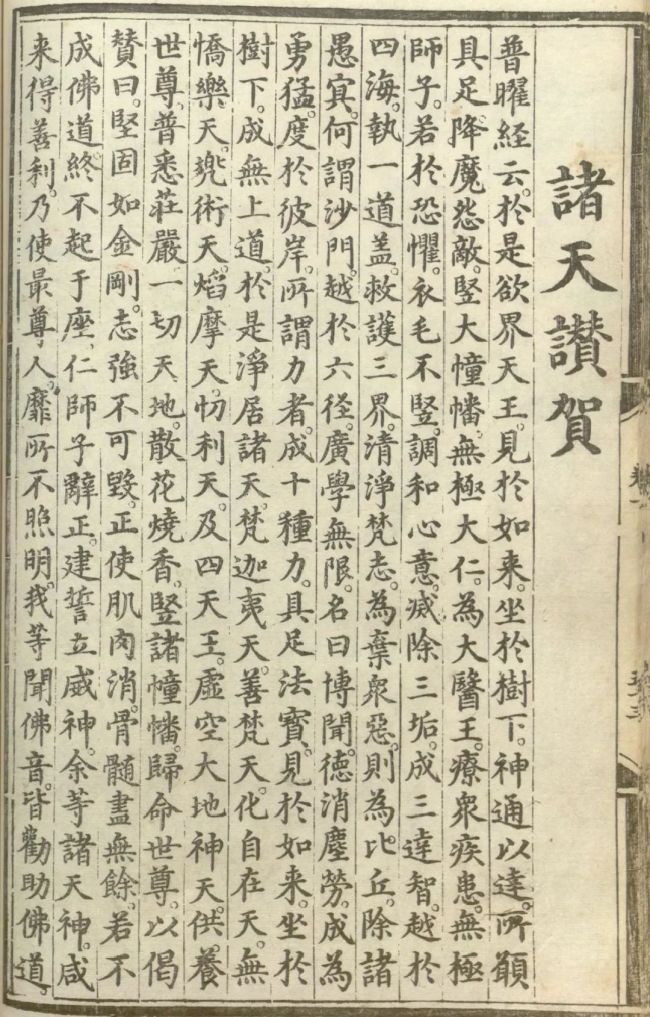 諸天讃賀
普曜経云。於是欲界天王。見於如来。坐於樹下。神通以達。所願
具足。降魔怨敵。竪大幢幡。無極大仁。為大醫王。療衆疾患。無極
師子。若於恐懼。衣毛不竪。調和心意。㓕除三垢。成三達智。越於
四海。執一道盖。救護三界。清淨梵志。為棄衆惡。則為比丘。除諸
愚㝠。何謂沙門。越於六径。廣學無限。名曰博聞。徳消塵勞。成為
勇猛。度於彼岸。所謂力者。成十種力。具足法寶。見於如来。坐於
樹下。成無上道。於是淨居諸天。梵迦夷天。善梵天。化自在天。無
憍樂天。兠術天。焰摩天。忉利天。及四天王。虚空大地神天。供養
世尊。普悉莊嚴一切天地。散花燒香。竪諸幢幡。歸命世尊。以偈
賛曰。堅固如金剛。志強不可毀。正使肌肉消。骨髓盡無餘。若不
成佛道。終不起于座。仁師子辭正。建誓立威神。余等諸天神。咸
来得善利。乃使最尊人。靡所不照明。我等聞佛音。皆勸助佛道。